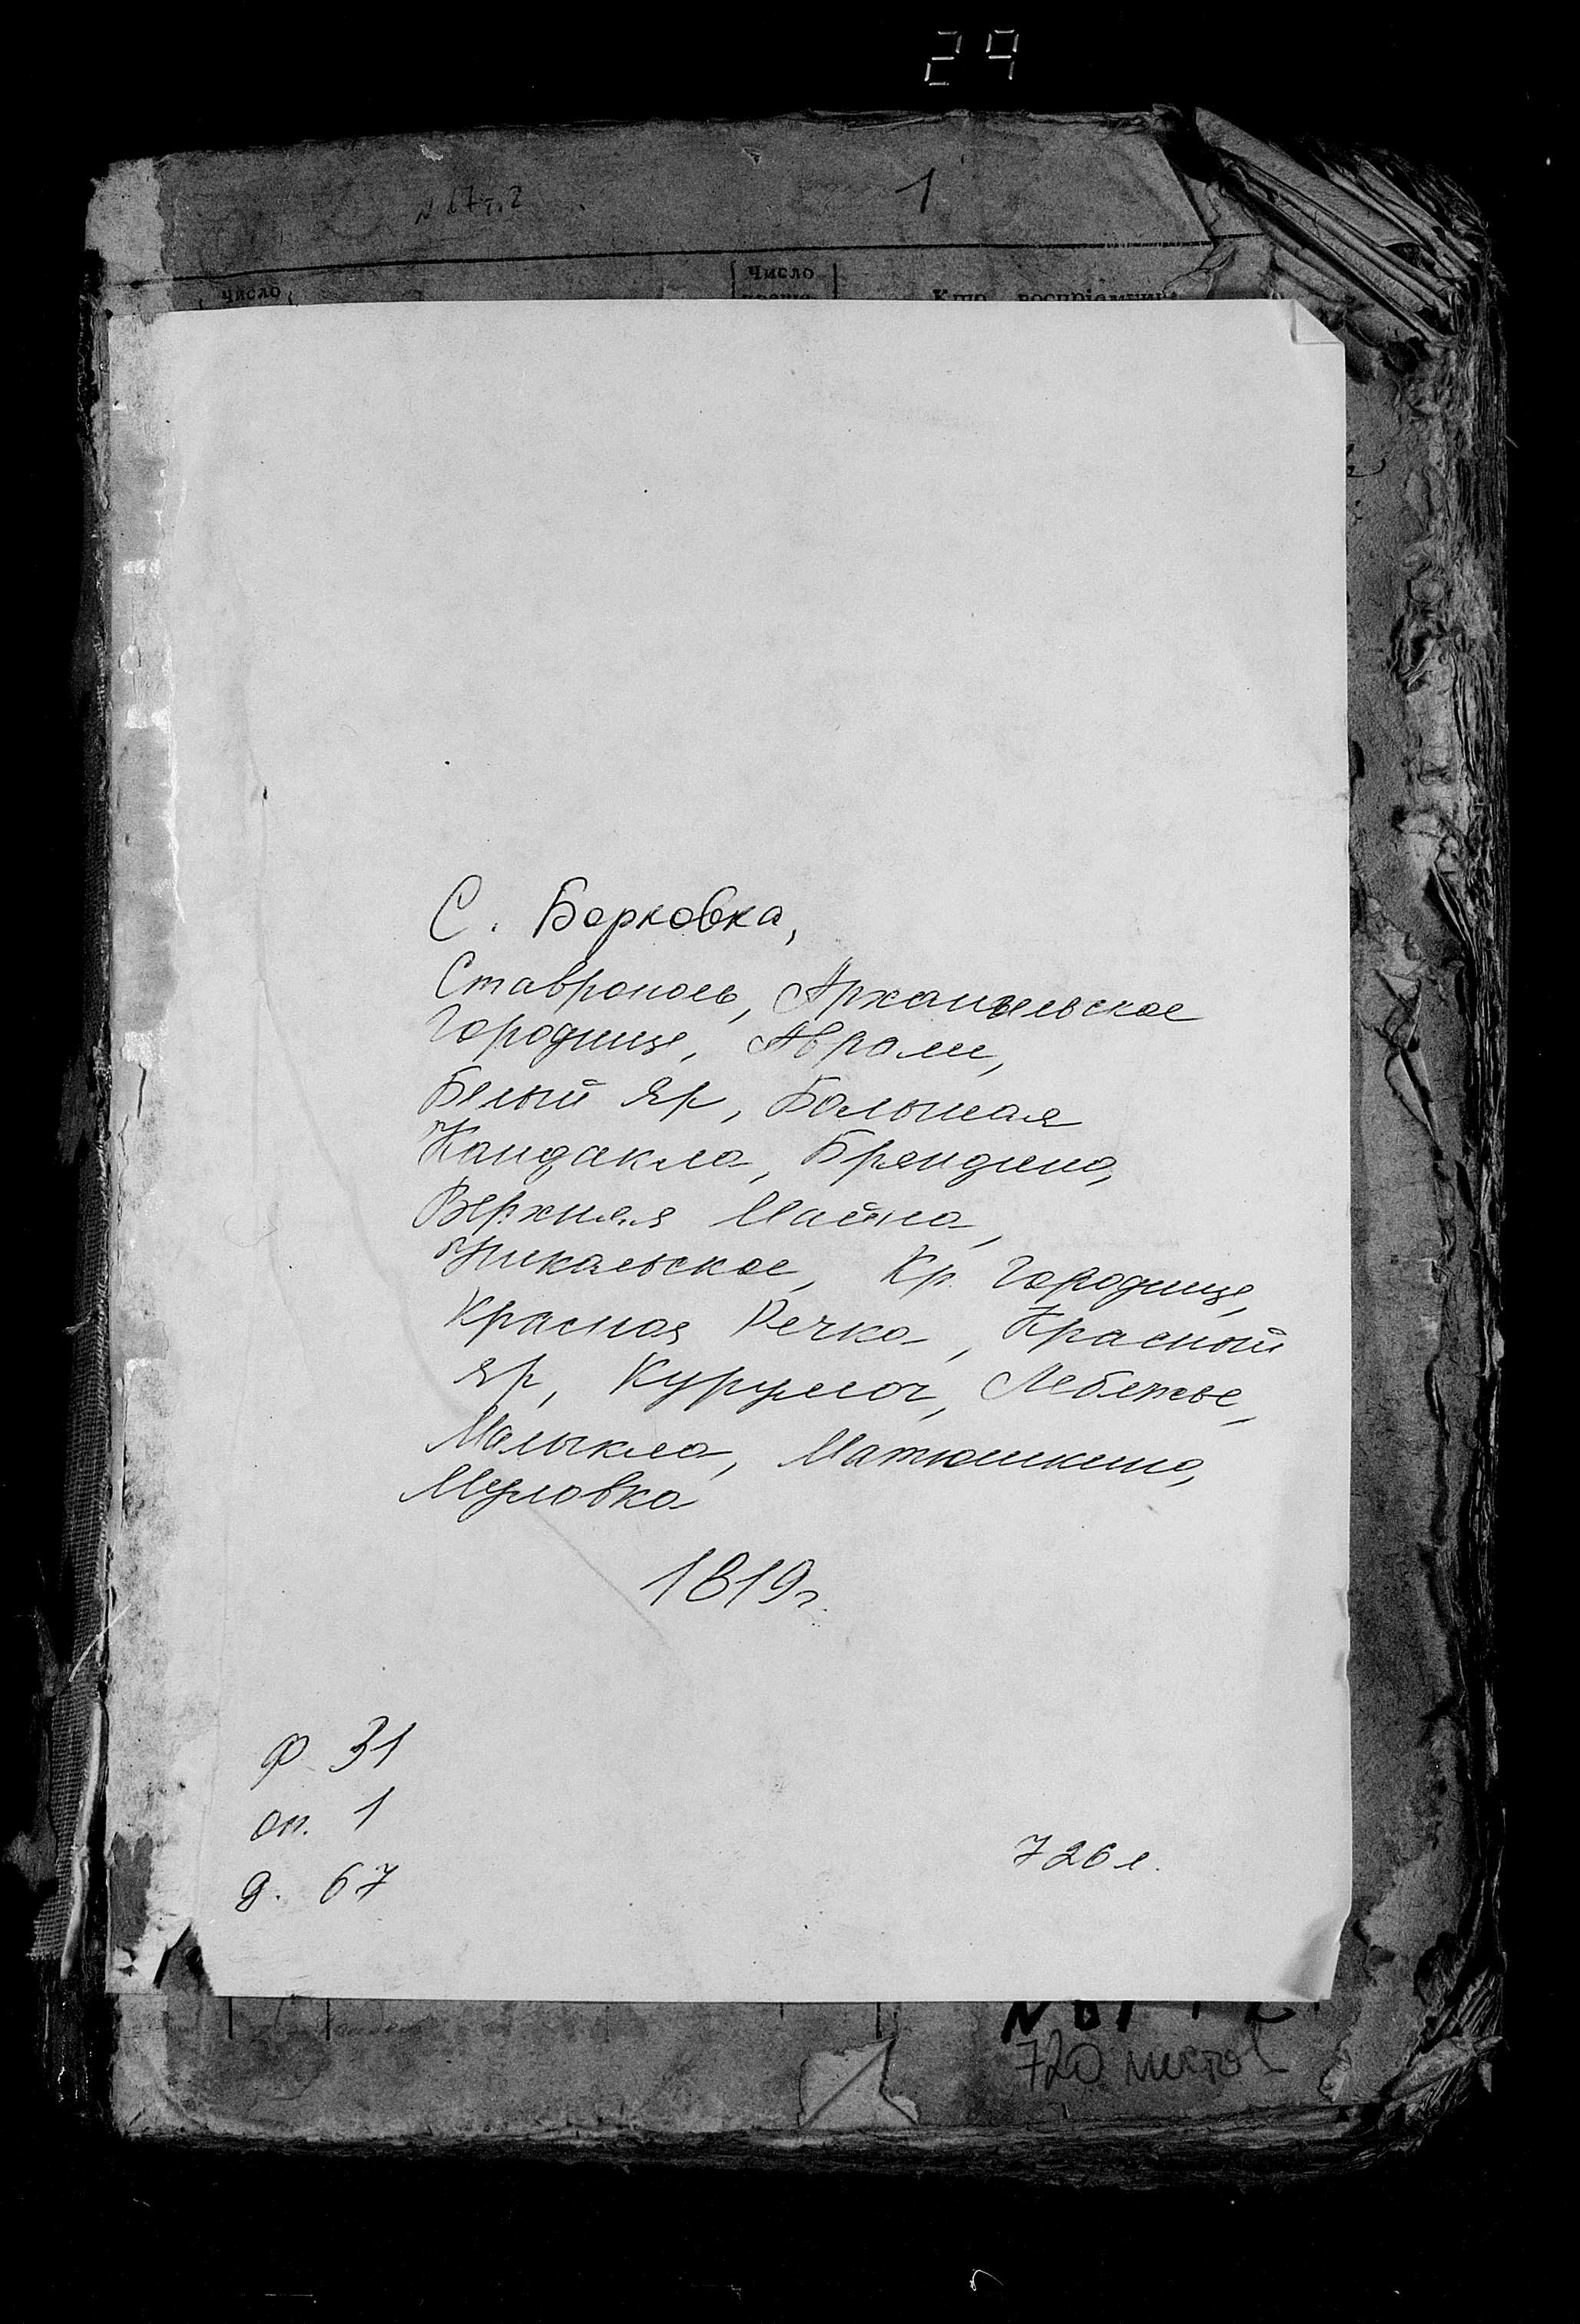 29
N 67 т. 2
1
число
Число
Кто воспріемник
С. Борковка,
Ставрополь, Архангельское
Городище, Аврали,
Белый Яр, Большая
Кандакла, Бряндино,
Верхняя Майна,
Никольское, Кр. Городище,
Красная Речка, Красный
Яр, Курумоч, Лебяжье,
Малыкла, Матюшкино,
Мулловка
1819г.
Ф 31
оп. 1
д. 67
726 л.
720 листов